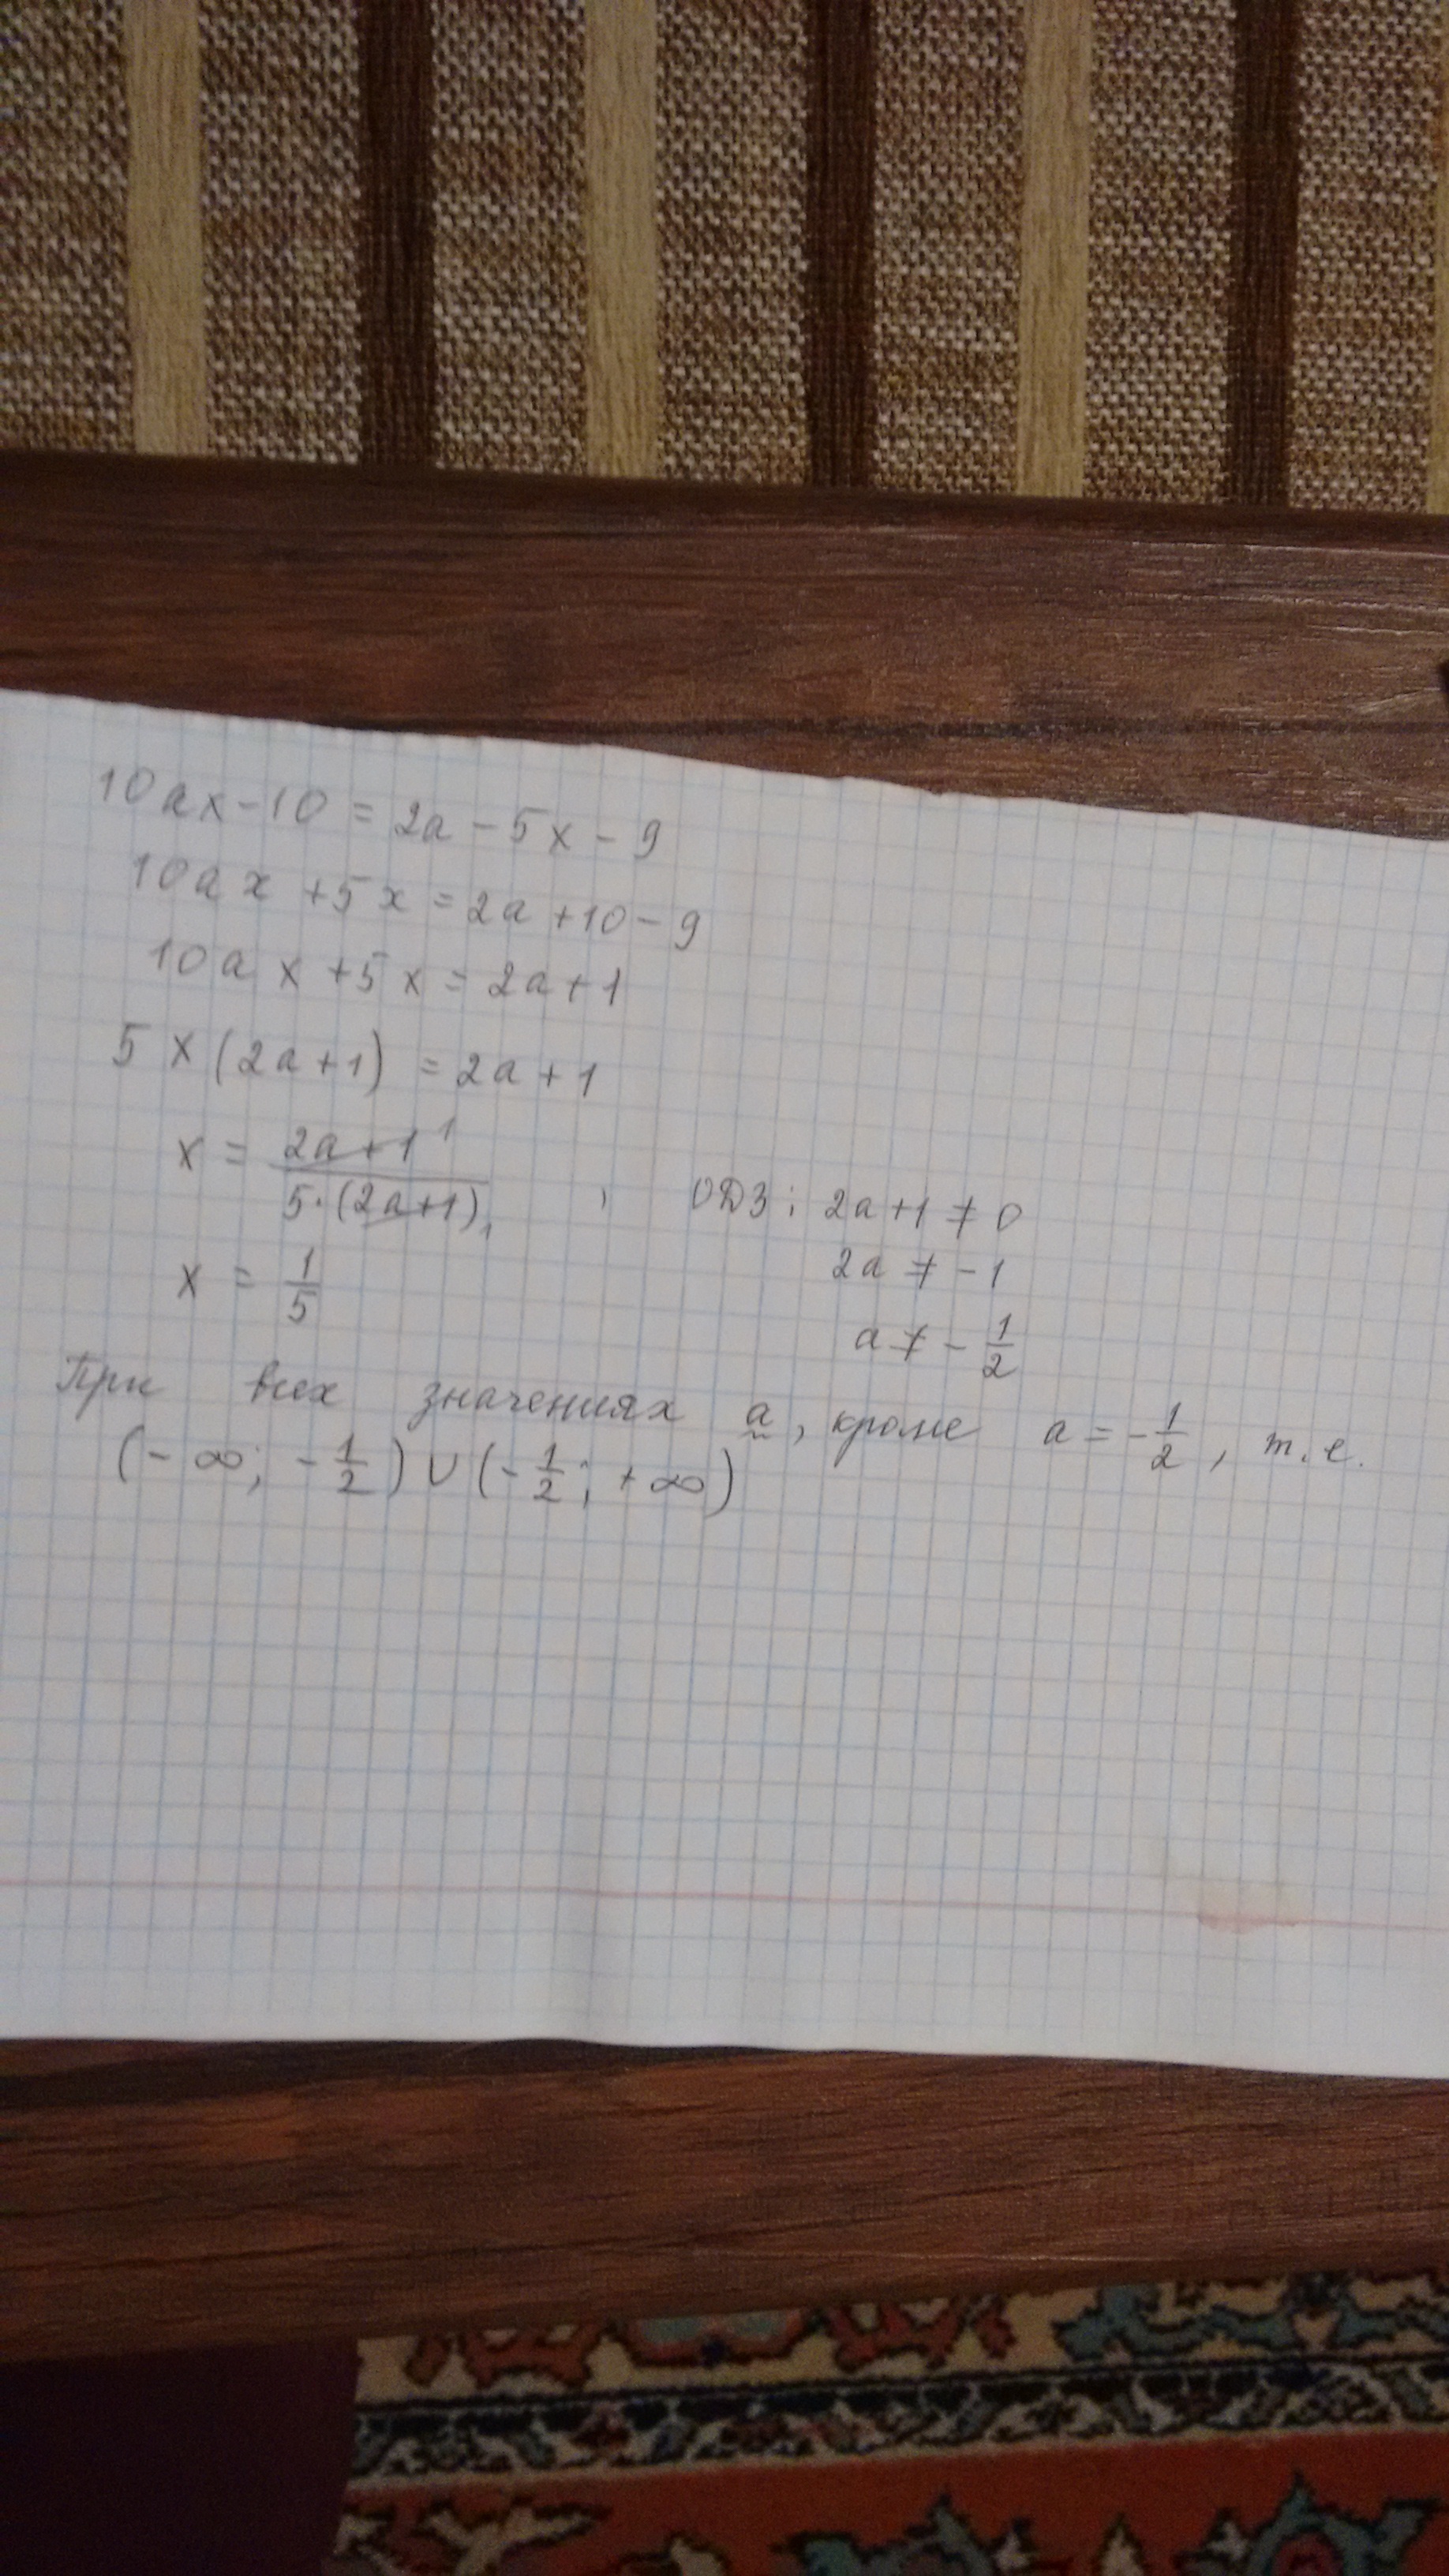 10ax-10 = 2a-5x-9
10ax+5x=2a+10-9
10ax+5x=2a+1
5x(2a+1) = 2a+1
x = (2a+1)¹/(5·(2a+1)₁) , ОДЗ: 2a+1 ≠ 0
2a ≠ -1
x = 1/5
a ≠ - 1/2
При всех значениях a, кроме a=-1/2, т.е.
(-∞; -1/2)∪(-1/2; +∞)